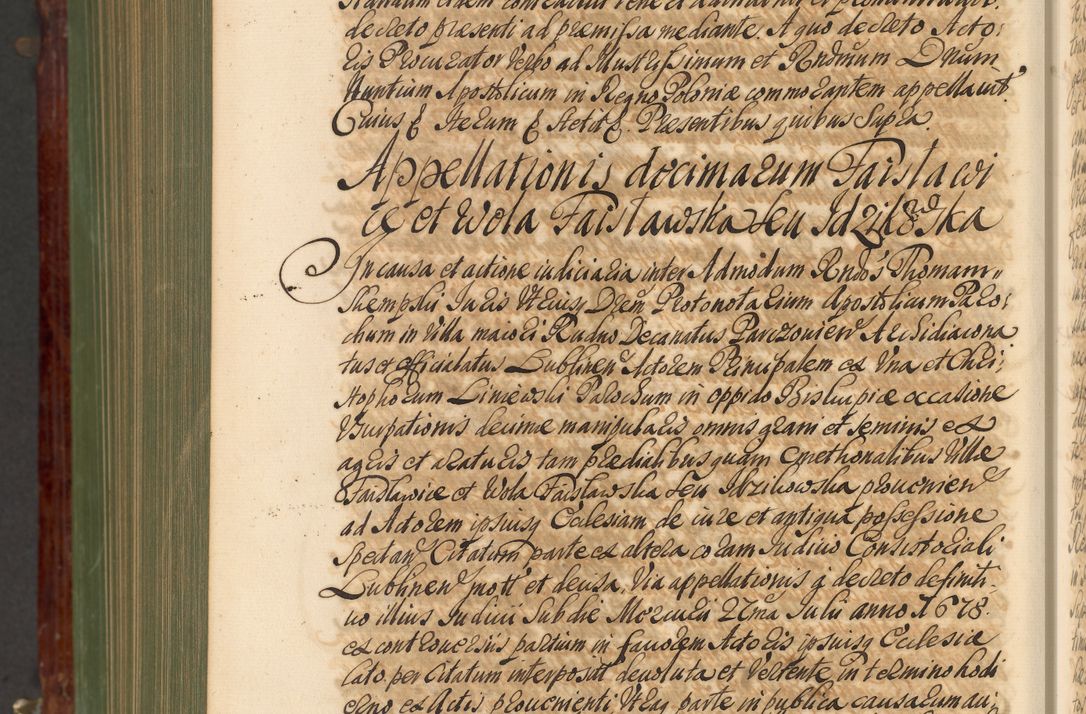 decreto præsenti ad præmissa mediante. A quo decreto Acto:
ris Procurator Verbo ad Illustrissimum et Rndmum Dnum
Nuntium Apostolicum in Regno Poloniæ commorantem appellavit
Cuius & Iterum & Actit & Præsentibus quibus Supra.
Appellationis decimarum Faislawi
ce et Wola Faislawska seu Idzikowska
In causa et actione iudiciaria inter Admodum Rndos Thomam
Skempski Juris Utriusq Drem Protonotarium Apostolicum Paro:
chum in Villa maiori Rudno Decanatus Parczovien Archidiacona
tus et officialatus Lublinen Actorem Principalem ex Una et Chri:
stophorum Liniewski Parochum in oppido Biskupice occasione
Usurpationis decimæ manipularis omnis grani et seminis ex
agris et araturis tam prædialibus quam cmethonalibus Villæ
Faislawice et Wola Faislawska seu Idzikowska provenien
ad Actorem ipsiusq Ecclesiam de iure et antiqua possessione
spectan Citatum parte ex altera coram Judicio Consistoriali
Lublinen mott et decisa, Via appellationis a decreto definiti
vo illius Judicii Sub die Mercurii 27ma Julii anno 1678.
ex controversiis partium in favorem Actoris ipsiusq Ecclesiæ
lato per Citatum interposit devoluta et Vertente, in termino hodi
erno ex Actis provenienti Utraq parte in publica causarum au: